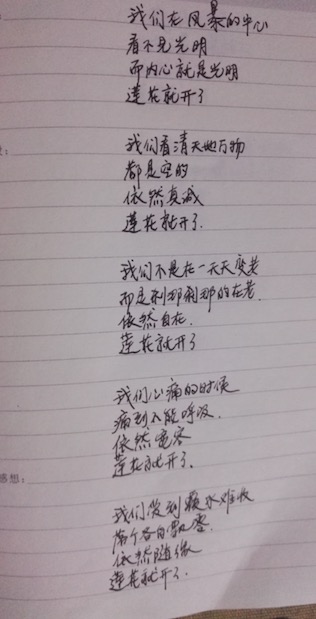 我们在风暴的中心
看不见光明
而内心就是光明
莲花就开了
我们看清天地万物
都是空的
依然真诚
莲花就开了.
我们不是在一天天变老
而是刹那刹那的在老.
依然自在.
莲花就开了
我们心痛的时候
痛到不能呼吸.
依然宽容
莲花就开了.
我们做到覆水难收
两个各自飘零.
依然随缘
莲花就开了.
感想: